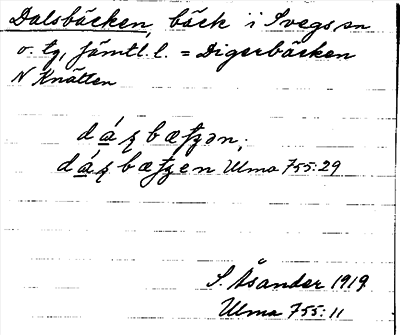 Dalsbäcken, bäck i Svegs sn
o. tg, Jämtl. l. = Digerbäcken
N Knätten
Ulma 755:29
S. Åsander 1919
Ulma 755:11